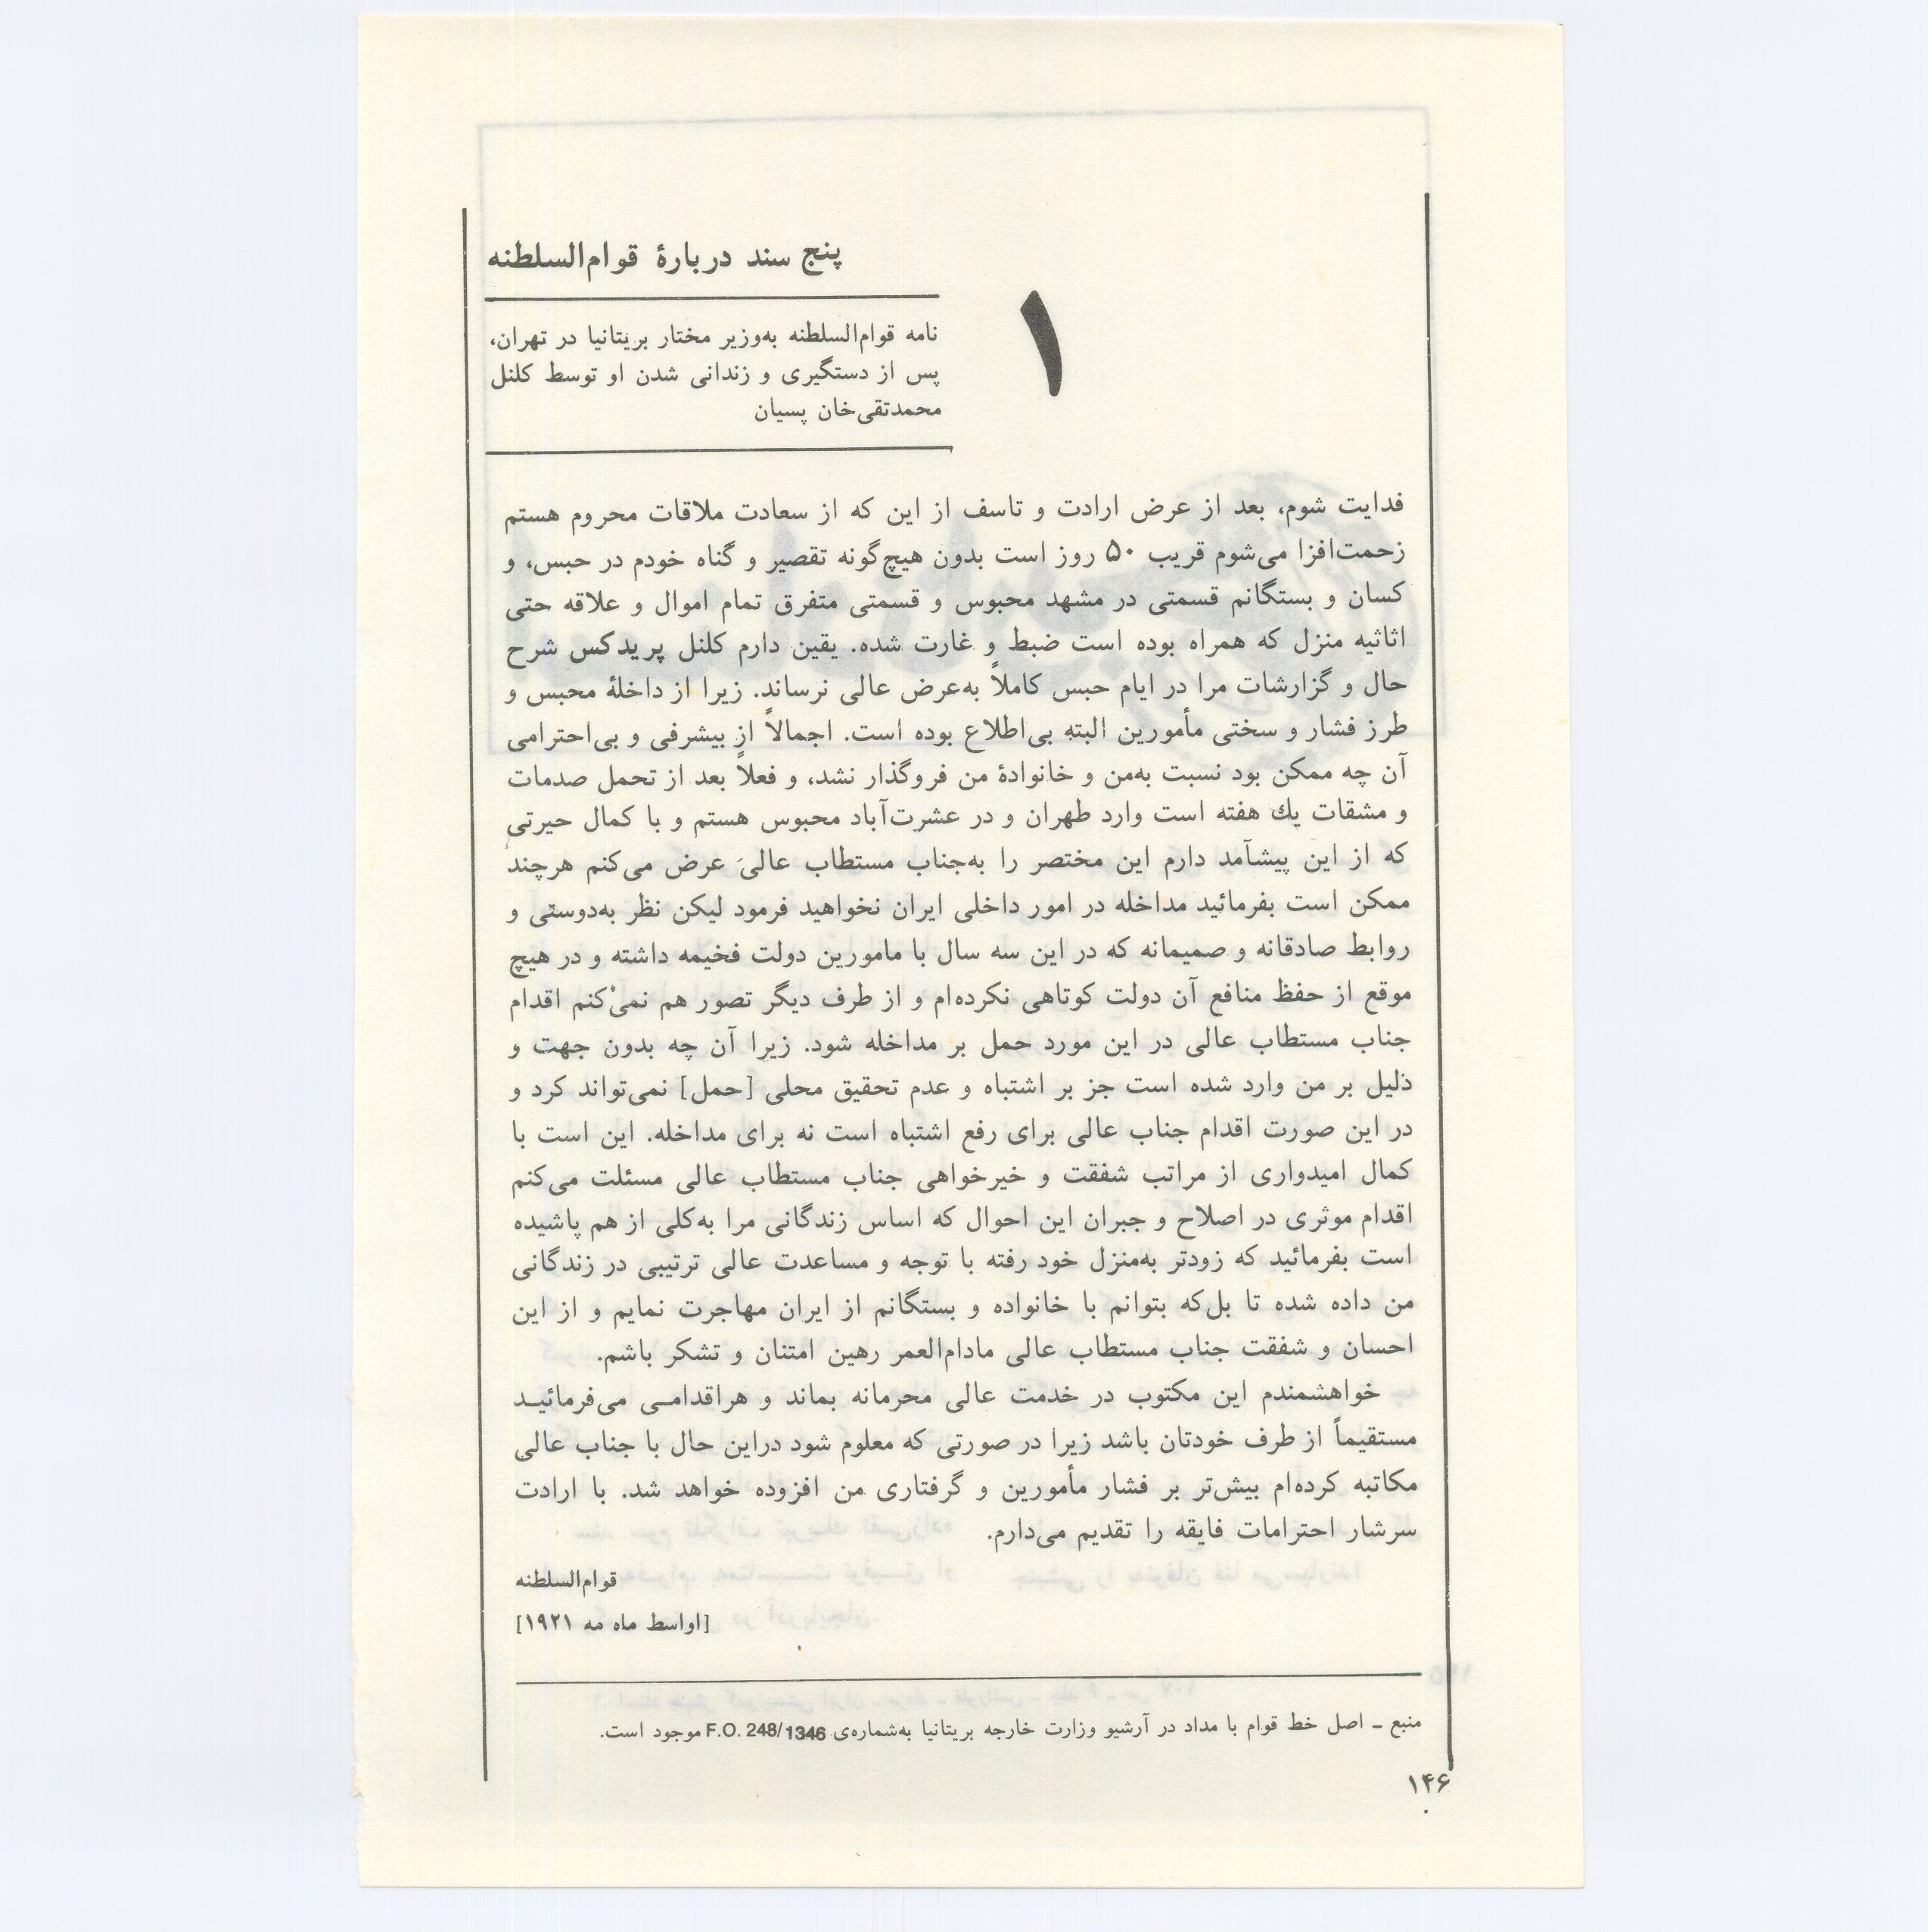 پنج سند دربارهٔ قوام‌السلطنه
۱
نامه قوام‌السلطنه به‌وزیر مختار بریتانیا در تهران،
پس از دستگیری و زندانی شدن او توسط کلنل
محمدتقی‌خان پسیان
فدایت شوم، بعد از عرض ارادت و تاسف از این که از سعادت ملاقات محروم هستم
زحمت‌افزا می‌شوم قریب ۵۰ روز است بدون هیچ‌گونه تقصیر و گناه خودم در حبس، و
کسان و بستگانم قسمتی در مشهد محبوس و قسمتی متفرق تمام اموال و علاقه حتی
اثاثیه منزل که همراه بوده است ضبط و غارت شده. یقین دارم کلنل پریدکس شرح
حال و گزارشات مرا در ایام حبس کاملاً به‌عرض عالی نرساند. زیرا از داخلهٔ محبس و
طرز فشار و سختی مأمورین البته بی‌اطلاع بوده است. اجمالاً از بیشرفی و بی‌احترامی
آن چه ممکن بود نسبت به‌من و خانوادهٔ من فروگذار نشد، و فعلاً بعد از تحمل صدمات
و مشقات یك هفته است وارد طهران و در عشرت‌آباد محبوس هستم و با کمال حیرتی
که از این پیشآمد دارم این مختصر را به‌جناب مستطاب عالی عرض می‌کنم هرچند
ممکن است بفرمائید مداخله در امور داخلی ایران نخواهید فرمود لیکن نظر به‌دوستی و
روابط صادقانه و صمیمانه که در این سه سال با مامورین دولت فخیمه داشته و در هیچ
موقع از حفظ منافع آن دولت کوتاهی نکرده‌ام و از طرف دیگر تصور هم نمی‌کنم اقدام
جناب مستطاب عالی در این مورد حمل بر مداخله شود. زیرا آن چه بدون جهت و
دلیل بر من وارد شده است جز بر اشتباه و عدم تحقیق محلی [حمل] نمی‌تواند کرد و
در این صورت اقدام جناب عالی برای رفع اشتباه است نه برای مداخله. این است با
کمال امیدواری از مراتب شفقت و خیرخواهی جناب مستطاب عالی مسئلت می‌کنم
اقدام موثری در اصلاح و جبران این احوال که اساس زندگانی مرا به‌کلی از هم پاشیده
است بفرمائید که زودتر به‌منزل خود رفته با توجه و مساعدت عالی ترتیبی در زندگانی
من داده شده تا بل‌که بتوانم با خانواده و بستگانم از ایران مهاجرت نمایم و از این
احسان و شفقت جناب مستطاب عالی مادام‌العمر رهین امتنان و تشکر باشم.
خواهشمندم این مکتوب در خدمت عالی محرمانه بماند و هراقدامـی می‌فرمائیـد
مستقیماً از طرف خودتان باشد زیرا در صورتی که معلوم شود دراین حال با جناب عالی
مکاتبه کرده‌ام بیش‌تر بر فشار مأمورین و گرفتاری من افزوده خواهد شد. با ارادت
سرشار احترامات فایقه را تقدیم می‌دارم.
قوام‌السلطنه
[اواسط ماه مه ۱۹۲۱]
منبع ـ اصل خط قوام با مداد در آرشیو وزارت خارجه بریتانیا به‌شماره‌ی F.O. 248/1346 موجود است.
۱۴۶